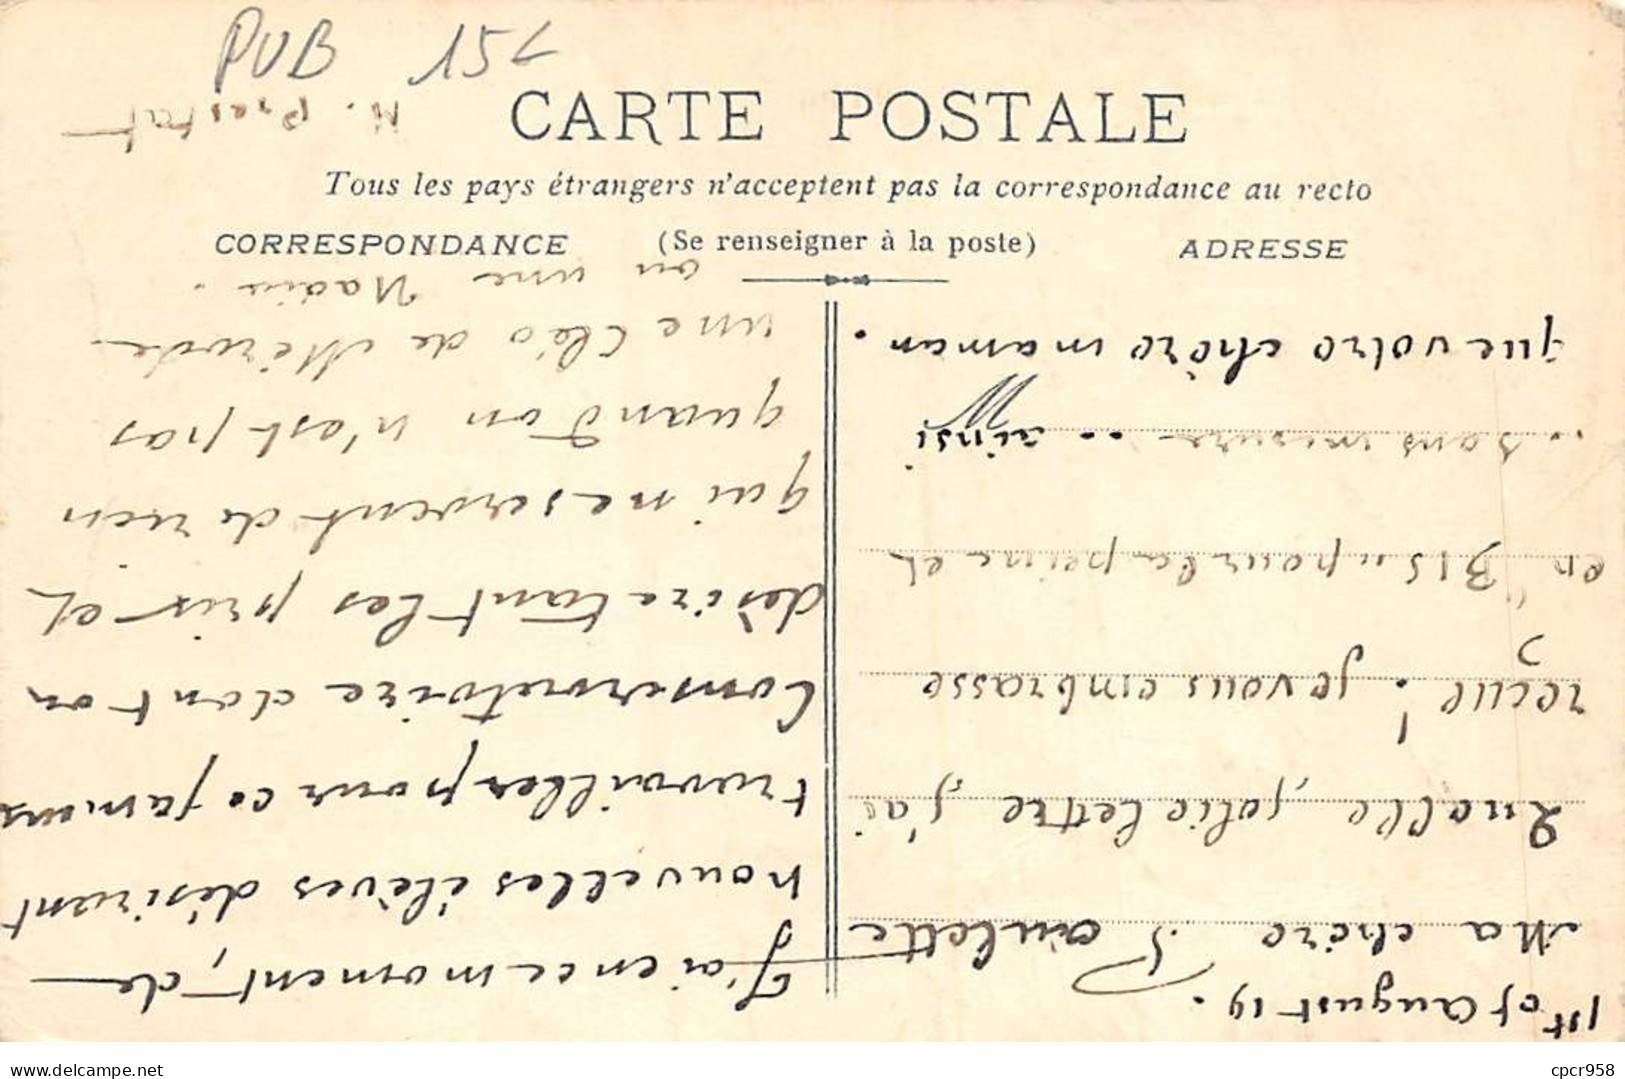 PUB 15-
CARTE POSTALE
Tous les pays étrangers n'acceptent pas la correspondance au recto
CORRESPONDANCE
(Se renseigner à la poste)
ADRESSE
1st of August 19.
Ma chère Paulette
Quelle jolie lettre j'ai
reçue! je vous embrasse
en "BIS" pour la peine et
.. sans mesure .. ainsi
que votre chère maman.
J'ai en ce moment, de
nouvelles élèves désirant
travailler pour ce fameux
Conservatoire dont on
désire tant les prix et
qui ne servent de rien
quand on n'est pas
une Cléo de Mérode
ou une
M. Prestat
cpcr958